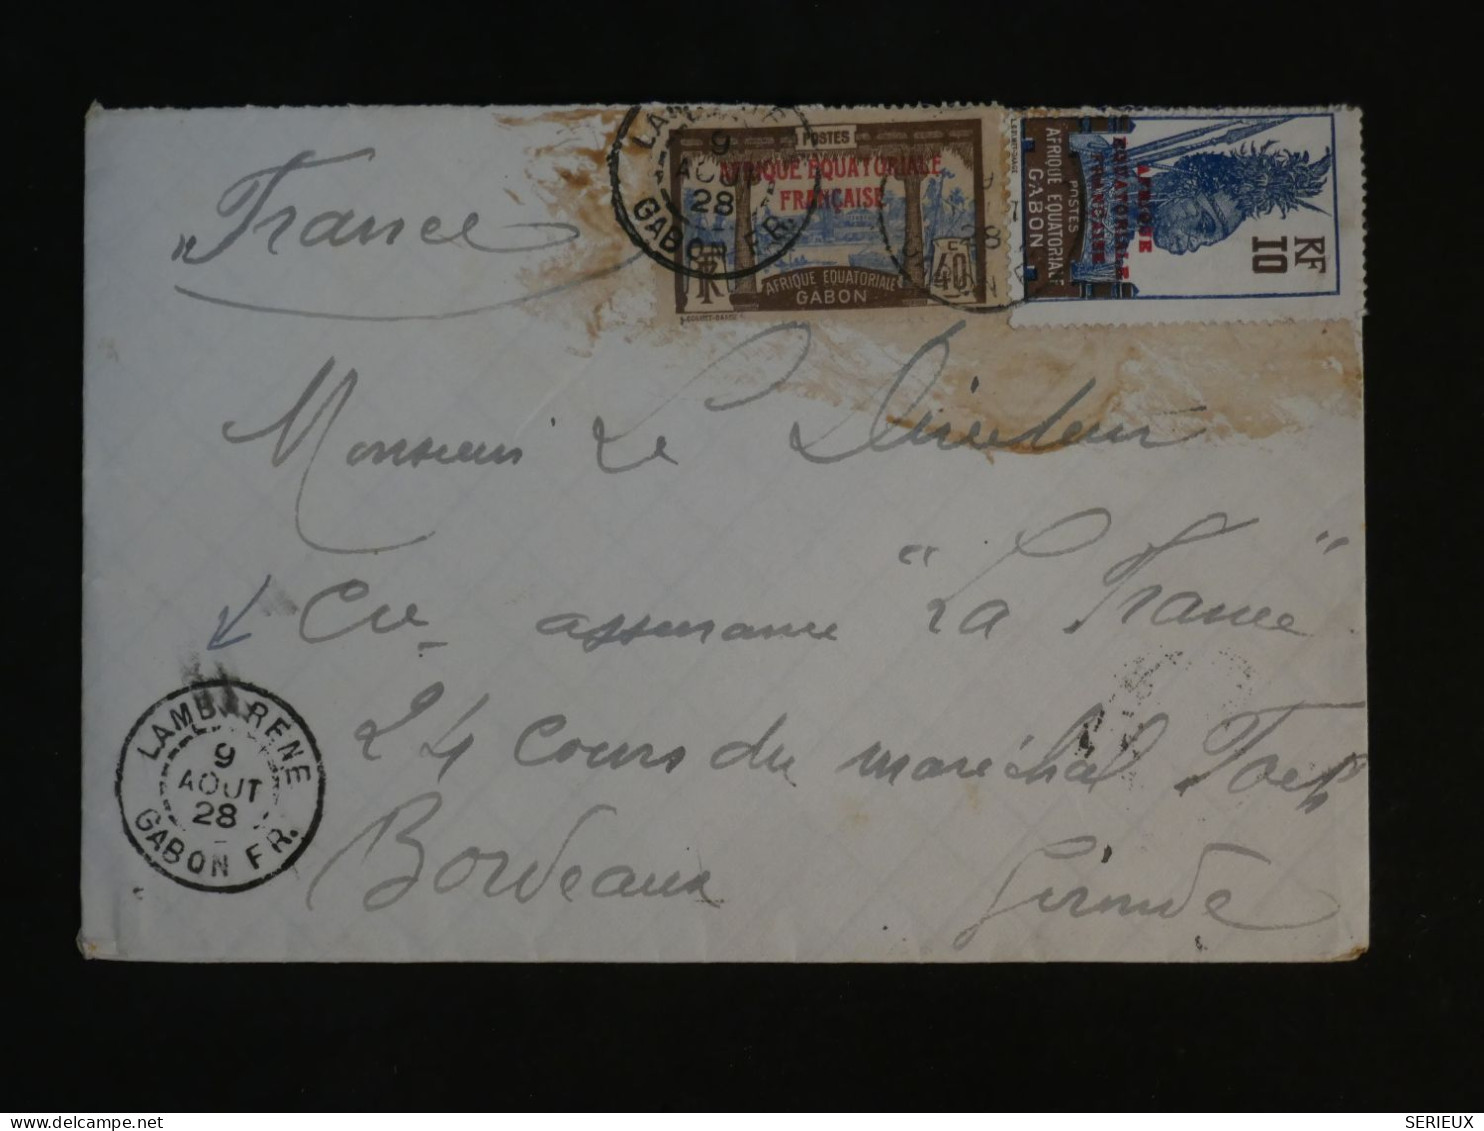 "France
Monsieur Le Directeur
Cie assurance "La France"
24 cours du maréchal Foch
Bordeaux Gironde
LAMBARENE
9
AOUT
28
GABON FR.
LAMBARENE
9
AOUT
28
GABON FR.
POSTES
AFRIQUE EQUATORIALE
FRANÇAISE
RF
40
AFRIQUE EQUATORIALE
GABON
RF
10
POSTES
AFRIQUE EQUATORIALE
GABON
AFRIQUE
EQUATORIALE
FRANÇAISE
SERIEUX - Delcampe.net